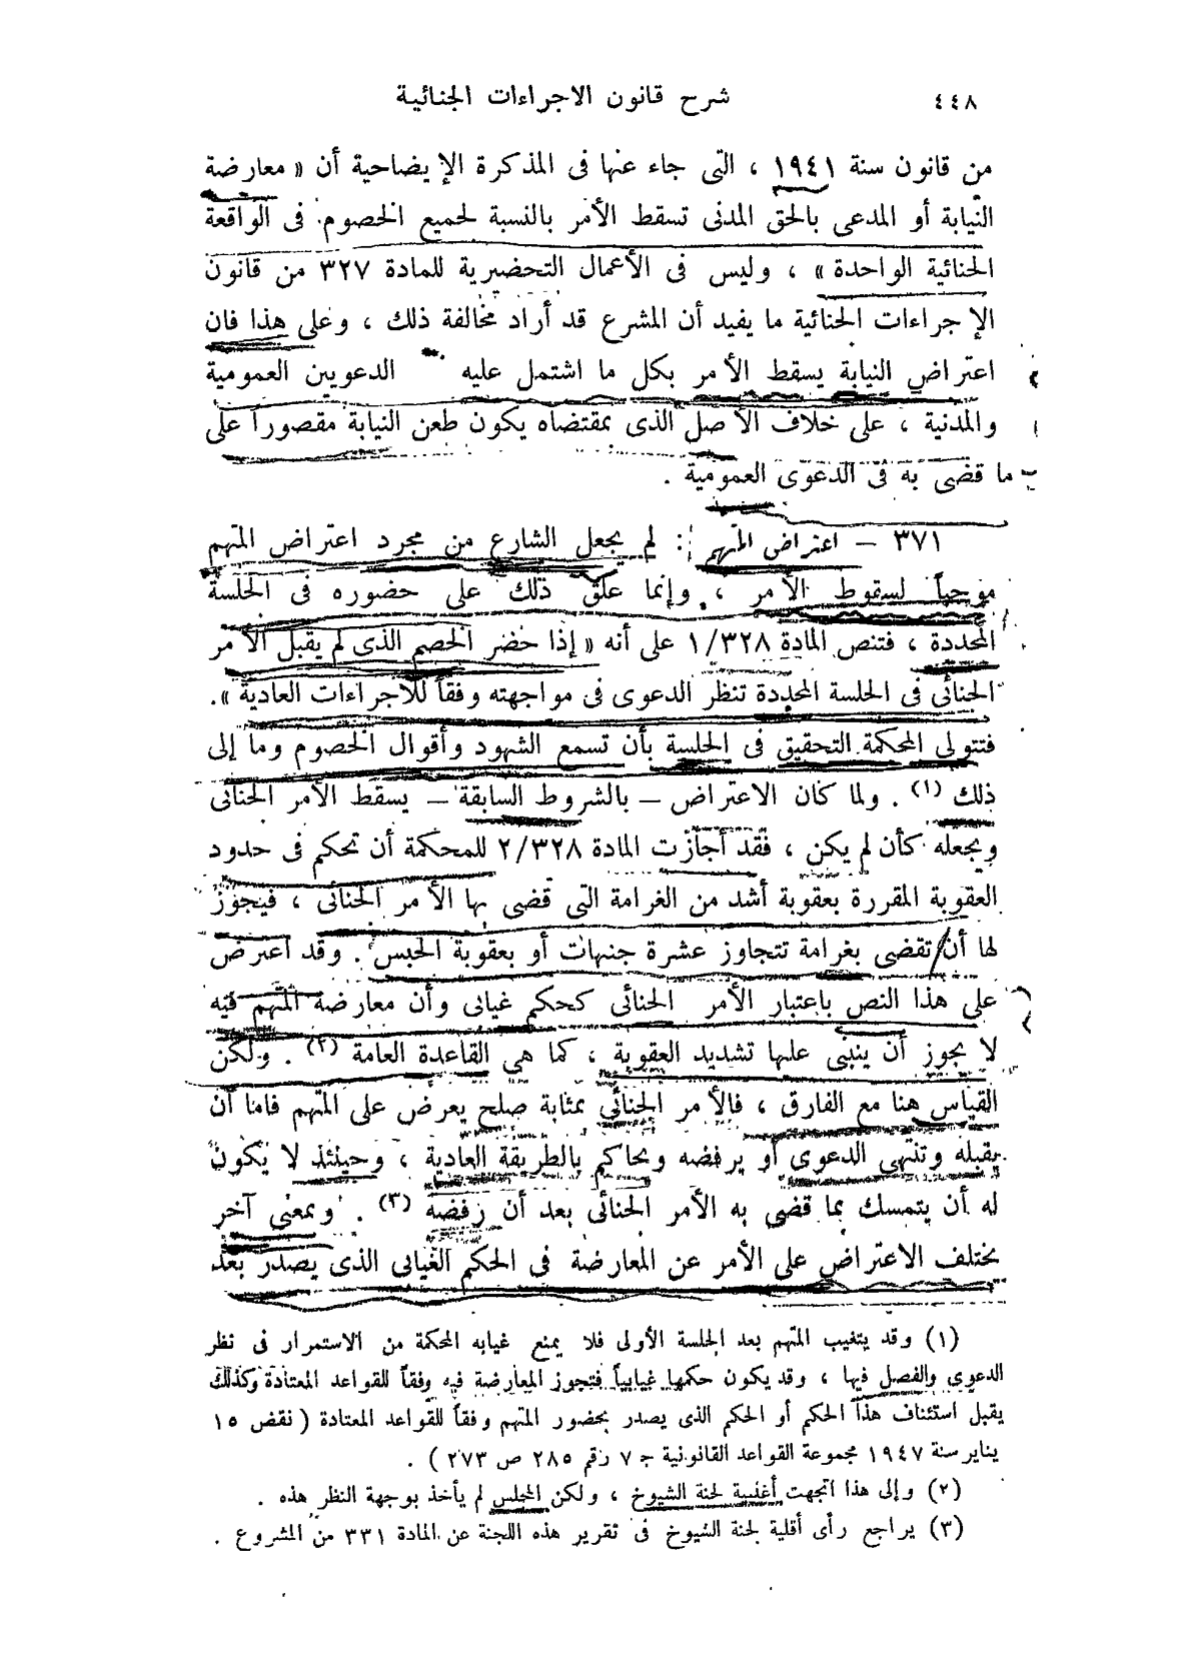 ٤٤٨
شرح قانون الاجراءات الجنائية
من قانون سنة ١٩٤١ ، التى جاء عنها فى المذكرة الإيضاحية أن « معارضة
النيابة أو المدعى بالحق المدنى تسقط الأمر بالنسبة لجميع الخصوم فى الواقعة
الجنائية الواحدة » ، وليس فى الأعمال التحضيرية للمادة ٣٢٧ من قانون
الإجراءات الجنائية ما يفيد أن المشرع قد أراد مخالفة ذلك ، وعلى هذا فان
اعتراض النيابة يسقط الأمر بكل ما اشتمل عليه الدعويين العمومية
والمدنية ، على خلاف الأصل الذى بمقتضاه يكون طعن النيابة مقصوراً على
ما قضى به فى الدعوى العمومية .
٣٧١ — اعتراض المتهم : لم يجعل الشارع من مجرد اعتراض المتهم
موجباً لسقوط الأمر ، وإنما علق ذلك على حضوره فى الجلسة
المحددة ، فتنص المادة ١/٣٢٨ على أنه « إذا حضر الخصم الذى لم يقبل الأمر
الجنائى فى الجلسة المحددة تنظر الدعوى فى مواجهته وفقاً للاجراءات العادية » .
فتتولى المحكمة التحقيق فى الجلسة بأن تسمع الشهود وأقوال الخصوم وما إلى
ذلك (١) . ولما كان الاعتراض — بالشروط السابقة — يسقط الأمر الجنائى
ويجعله كأن لم يكن ، فقد أجازت المادة ٢/٣٢٨ للمحكمة أن تحكم فى حدود
العقوبة المقررة بعقوبة أشد من الغرامة التى قضى بها الأمر الجنائى ، فيجوز
لها أن تقضى بغرامة تتجاوز عشرة جنيهات أو بعقوبة الحبس . وقد اعترض
على هذا النص باعتبار الأمر الجنائى كحكم غيابى وأن معارضة المتهم فيه
لا يجوز أن ينبنى عليها تشديد العقوبة ، كما هى القاعدة العامة (٢) . ولكن
القياس هنا مع الفارق ، فالأمر الجنائى بمثابة صلح يعرض على المتهم فاما أن
يقبله وتنتهى الدعوى أو يرفضه ويحاكم بالطريقة العادية ، وحينئذ لا يكون
له أن يتمسك بما قضى به الأمر الجنائى بعد أن رفضه (٣) . وبمعنى آخر
يختلف الاعتراض على الأمر عن المعارضة فى الحكم الغيابى الذى يصدر بعد
(١) وقد يتغيب المتهم بعد الجلسة الأولى فلا يمنع غيابه المحكمة من الاستمرار فى نظر
الدعوى والفصل فيها ، وقد يكون حكمها غيابياً فتجوز المعارضة فيه وفقاً للقواعد المعتادة وكذلك
يقبل استئناف هذا الحكم أو الحكم الذى يصدر بحضور المتهم وفقاً للقواعد المعتادة ( نقض ١٥
يناير سنة ١٩٤٧ مجموعة القواعد القانونية ج ٧ رقم ٢٨٥ ص ٢٧٣ ) .
(٢) وإلى هذا اتجهت أغلبية لجنة الشيوخ ، ولكن المجلس لم يأخذ بوجهة النظر هذه .
(٣) يراجع رأى أقلية لجنة الشيوخ فى تقرير هذه اللجنة عن المادة ٣٣١ من المشروع .